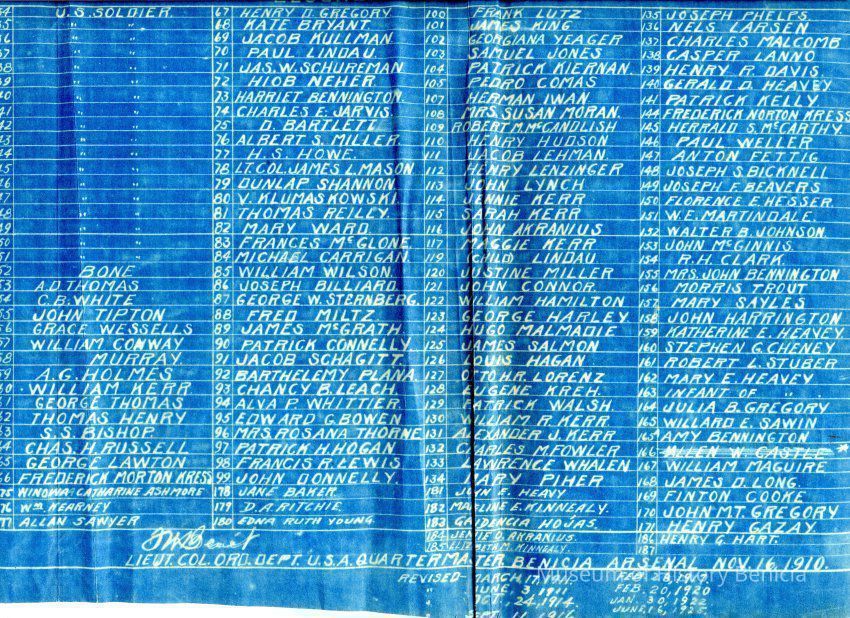 U.S. SOLDIER.
BONE
A.D. THOMAS
C.B. WHITE
JOHN TIPTON
GRACE WESSELLS
WILLIAM CONWAY
MURRAY.
A.G. HOLMES
WILLIAM KERR
GEORGE THOMAS
THOMAS HENRY
S.S. BISHOP.
CHAS. H. RUSSELL
GEORGE LAWTON
FREDERICK MORTON KRESS
WINOWA CATHARINE ASHMORE
WM KEARNEY
ALLAN SAWYER
67 HENRY D. GREGORY
68 KATE BRYANT
69 JACOB KULLMAN.
70 PAUL LINDAU.
71 JAS. W. SCHUREMAN
72 HIOB NEHER.
73 HARRIET BENNINGTON.
74 CHARLES E. JARVIS.
75 D. BARTLETT.
76 ALBERT S. MILLER
77 H.S. HOWE.
78 LT. COL. JAMES L. MASON
79 DUNLAP SHANNON
80 V. KLUMASKOWSKI
81 THOMAS REILLY.
82 MARY WARD
83 FRANCES McGLONE
84 MICHAEL CARRIGAN.
85 WILLIAM WILSON.
86 JOSEPH BILLIARD
87 GEORGE W. STERNBERG.
88 FRED MILTZ
89 JAMES McGRATH.
90 PATRICK CONNELLY
91 JACOB SCHAGITT.
92 BARTHELEMY PLANA.
93 CHANCY B. LEACH.
94 ALVA P. WHITTIER
95 EDWARD G. BOWEN
96 MRS. ROSANA THORNE
97 PATRICK H. HOGAN
98 FRANCIS R. LEWIS
99 JOHN DONNELLY.
178 JANE BAKER.
179 D.A. RITCHIE.
180 EDNA RUTH YOUNG
100 FRANK LUTZ
101 JAMES KING
102 GEORGIANA YEAGER
103 SAMUEL JONES
104 PATRICK KIERNAN.
105 PEDRO COMAS
107 HERMAN IWAN
108 MRS. SUSAN MORAN
109 ROBERT M. McCANDLISH
110 HENRY HUDSON
111 JACOB LEHMAN.
112 HENRY LENZINGER
113 JOHN LYNCH
114 JENNIE KERR
115 SARAH KERR
116 JOHN AKRANIUS
117 MAGGIE KERR
119 CHILD LINDAU
120 JUSTINE MILLER
121 JOHN CONNOR
122 WILLIAM HAMILTON
123 GEORGE HARLEY.
124 HUGO MALMADIE
125 JAMES SALMON
126 LOUIS HAGAN
127 LORENZ
128 EUGENE KREH.
129 PATRICK WALSH.
130 WILLIAM R. KERR
131 ALEXANDER J. KERR
132 CHARLES M. FOWLER
133 LAWRENCE WHALEN.
134 MARY PIHER
181 JOHN HEAVY
182 MADELINE E. KINNEALY.
183 GAUDENCIA HOJAS.
184 JENNIE O. AKRANIUS.
185 ELIZABETH M. KINNEALY.
135 JOSEPH PHELPS.
136 NELS LARSEN
137 CHARLES MALCOMB
138 CASPER LANNO
139 HENRY R. DAVIS
140 GERALD D. HEAVEY
141 PATRICK KELLY
144 FREDERICK NORTON KRESS
145 HERRALD S. McCARTHY.
146 PAUL WELLER
147 ANTON FETTIG
148 JOSEPH S. BICKNELL
149 JOSEPH F. BEAVERS
150 FLORENCE E. HESSER.
151 W.E. MARTINDALE.
152 WALTER B. JOHNSON.
153 JOHN McGINNIS.
154 R.H. CLARK
155 MRS. JOHN BENNINGTON
156 MORRIS TROUT
157 MARY SAYLES
158 JOHN HARRINGTON
159 KATHERINE E. HEAVEY
160 STEPHEN G. CHENEY
161 ROBERT L. STUBER
162 MARY E. HEAVEY
163 INFANT OF "
164 JULIA B. GREGORY
165 WILLARD E. SAWIN
165 AMY BENNINGTON
166 ALLEN W. CASTLE *
167 WILLIAM MAGUIRE
168 JAMES D. LONG.
169 FINTON COOKE
170 JOHN M.T. GREGORY
171 HENRY GAZAY.
186 HENRY G. HART.
187
LIEUT. COL. ORD. DEPT. U.S.A. QUARTERMASTER BENICIA ARSENAL NOV. 16, 1910.
REVISED
JUNE 3, 1911
OCT. 24, 1914.
FEB. 20, 1920
JAN. 30, 1922
JUNE, 16, 1925.
Museum of History Benicia